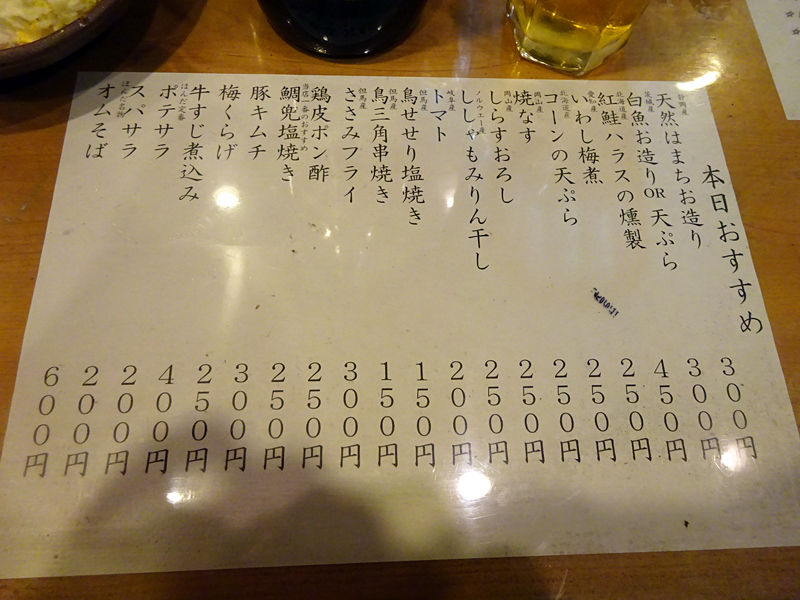 本日おすすめ
静岡産
天然はまちお造り 300円
茨城産
白魚お造りOR天ぷら 300円
北海道産
紅鮭ハラスの燻製 450円
愛知産
いわし梅煮 250円
北海道産
コーンの天ぷら 250円
岡山産
焼なす 250円
岡山産
しらすおろし 250円
ノルウェー産
ししゃもみりん干し 250円
岐阜産
トマト 200円
但馬産
鳥せせり塩焼き 150円
但馬産
鳥三角串焼き 150円
但馬産
ささみフライ 300円
鶏皮ポン酢 250円
当店一番のおすすめ
鯛兜塩焼き 250円
豚キムチ 300円
梅くらげ 250円
牛すじ煮込み 400円
ほんだ定番
ポテサラ 200円
ほんだ名物
スパサラ 200円
オムそば 600円